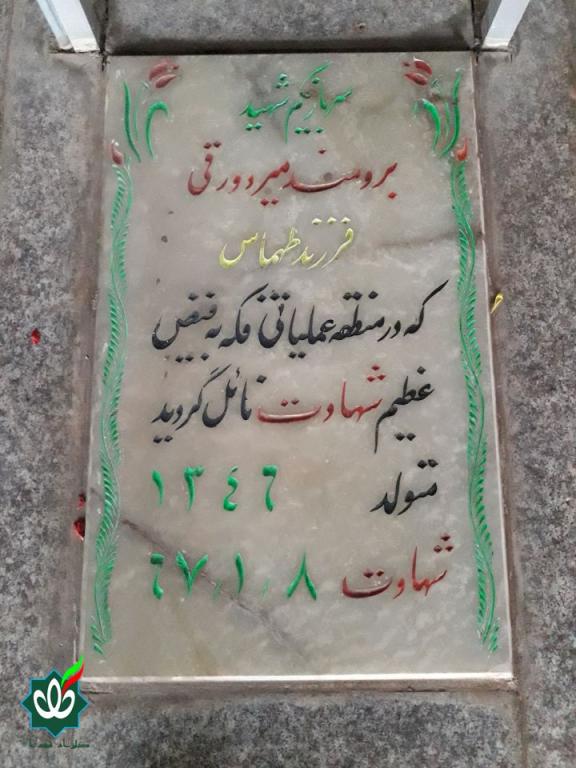 سرباز یکم شهید
برومند میردورقی
فرزند طهماس
که در منطقه عملیاتی فکه به فیض
عظیم شهادت نائل گردید
متولد ۱۳٤٦
شهادت ٨/١/٦٧
گلزار شهدا